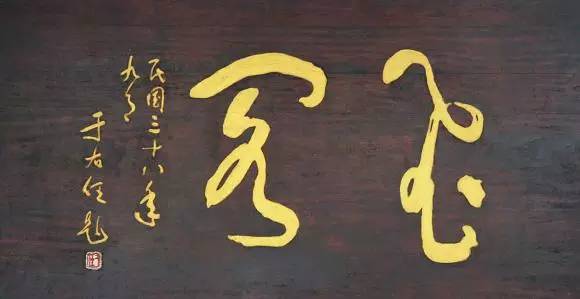 飛閣
民國三十八年
九月
于右任題